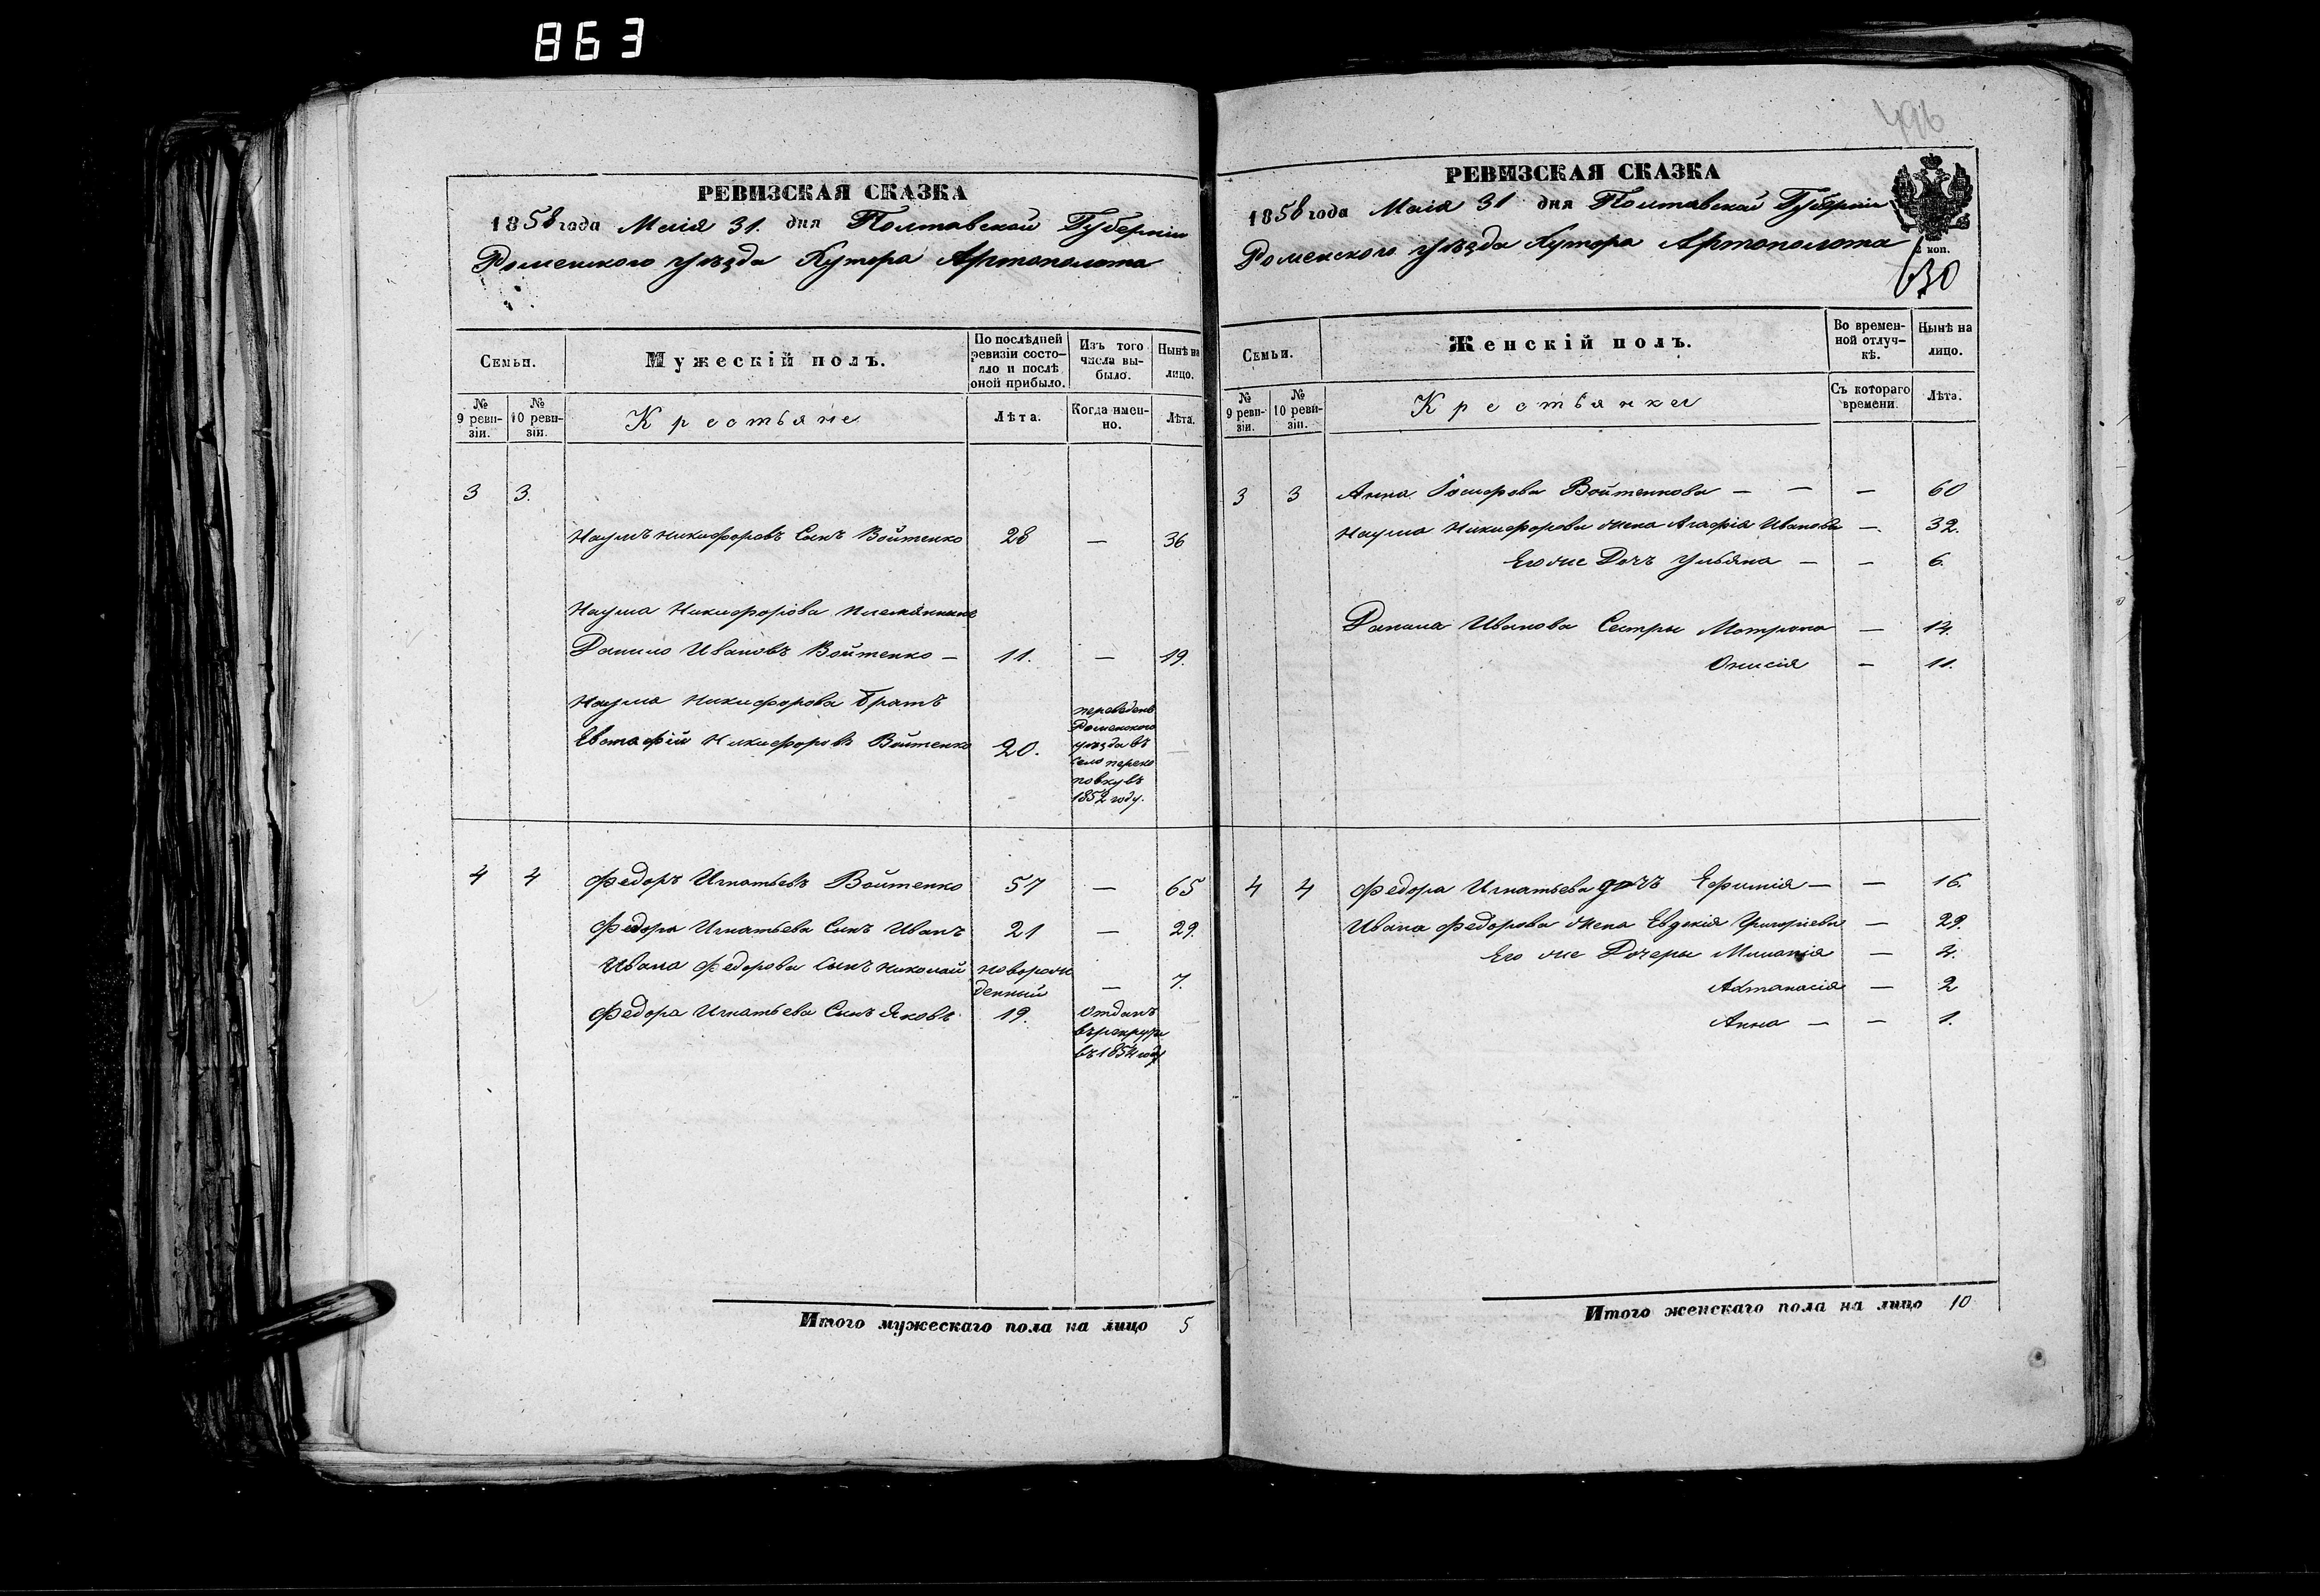 863
496
РЕВИЗСКАЯ СКАЗКА
1858 года Маія 31. дня Полтавской Губерніи
Роменского уѣзда Хутора Артополота
Семьи.
Мужескій полъ.
По послѣдней ревизіи состояло и послѣ оной прибыло.
Изъ того числа выбыло.
Нынѣ на лицо.
№ 9 ревизіи.
№ 10 ревизіи.
Крестьяне
Лѣта.
Когда именно.
Лѣта.
3 3.
Наумъ Никифоровъ Сынъ Войтенко 28 — 36
Наума Никифорова племянникъ
Данило Ивановъ Войтенко — 11. — 19.
Наума Никифорова братъ
Евстафій Никифоровъ Войтенко 20. —
переведенъ
Роменского
уѣзда въ
село переко
повку въ
1852 году.
4 4 Федоръ Игнатьевъ Войтенко 57 — 65
Федора Игнатьева Сынъ Иванъ 21 — 29.
Ивана Федорова Сынъ Николай новорож
денный — 7.
Федора Игнатьева Сынъ Яковъ 19. отданъ
въ рекруты
въ 1854 году
Итого мужескаго пола на лицо 5
РЕВИЗСКАЯ СКАЗКА
1858 года Маія 31 дня Полтавской Губерніи
Роменского уѣзда Хутора Артополота
2 коп.
630
Семьи.
Женскій полъ.
Во временной отлучкѣ.
Нынѣ на лицо.
№ 9 ревизіи.
№ 10 ревизіи.
Крестьянки
Съ котораго времени.
Лѣта.
3 3 Анна Войтенкова — — — 60
Наума Никифорова жена Агафія Иванова — 32.
Его же Дочь Ульяна — — 6.
Данила Иванова Сестры Мотрона — 14.
Онисія — 11.
4 4 Федора Игнатьева дочь Ефимія — — 16.
Ивана Федорова жена Евдокія Григорьева — 29.
Его же Дочеры Миланія — 4.
Афтанасія — 2
Анна — — 1.
Итого женскаго пола на лицо 10